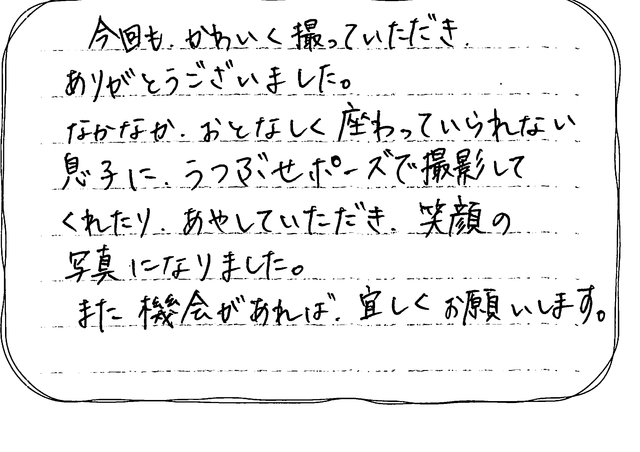 今回も、かわいく撮っていただき、
ありがとうございました。
なかなか、おとなしく座わっていられない
息子に、うつぶせポーズで撮影して
くれたり、あやしていただき、笑顔の
写真になりました。
また機会があれば、宜しくお願いします。